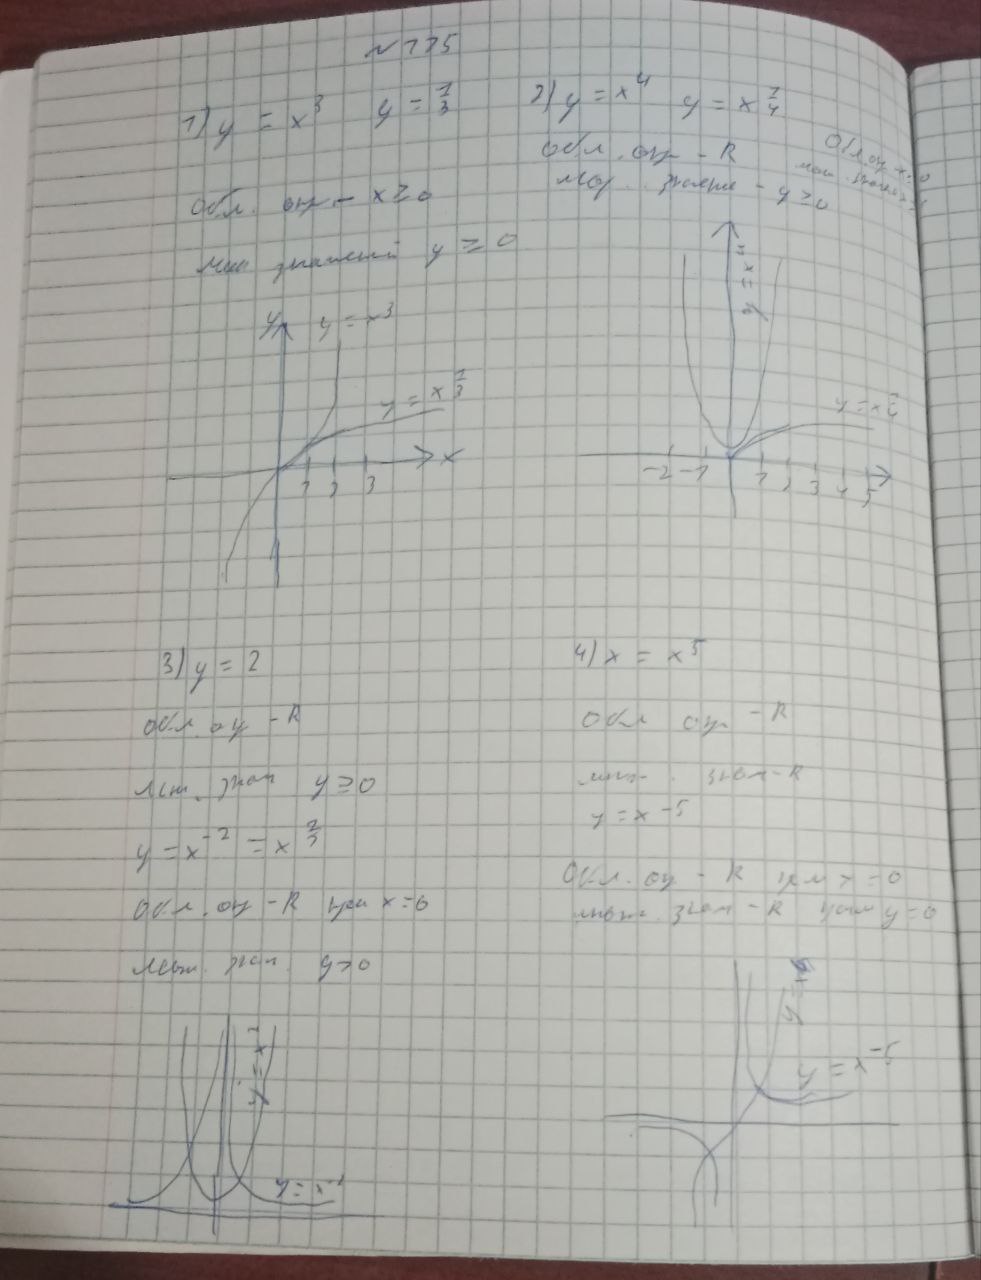 N 175
1) y = x³ y = 1/3
Обл. оп - x ≥ 0
Мн. значений y ≥ 0
y
y = x³
y = x^1/3
x
1 2 3
2) y = x⁴ y = x^1/4
Обл. оп - R
Мн. значе - y ≥ 0
y = x
y = x^1/4
-2 -1 1 2 3 4 5
3) y = 2
Обл. оп - R
Мн. знач y ≥ 0
y = x⁻² =
Обл. оп - R при x = 0
Мн. знач. y > 0
4) x = x⁵
Обл оп - R
мн. знач - R
y = x⁻⁵
Обл. оп - R при x = 0
мн. знач - R при y = 0
y = x⁻⁵